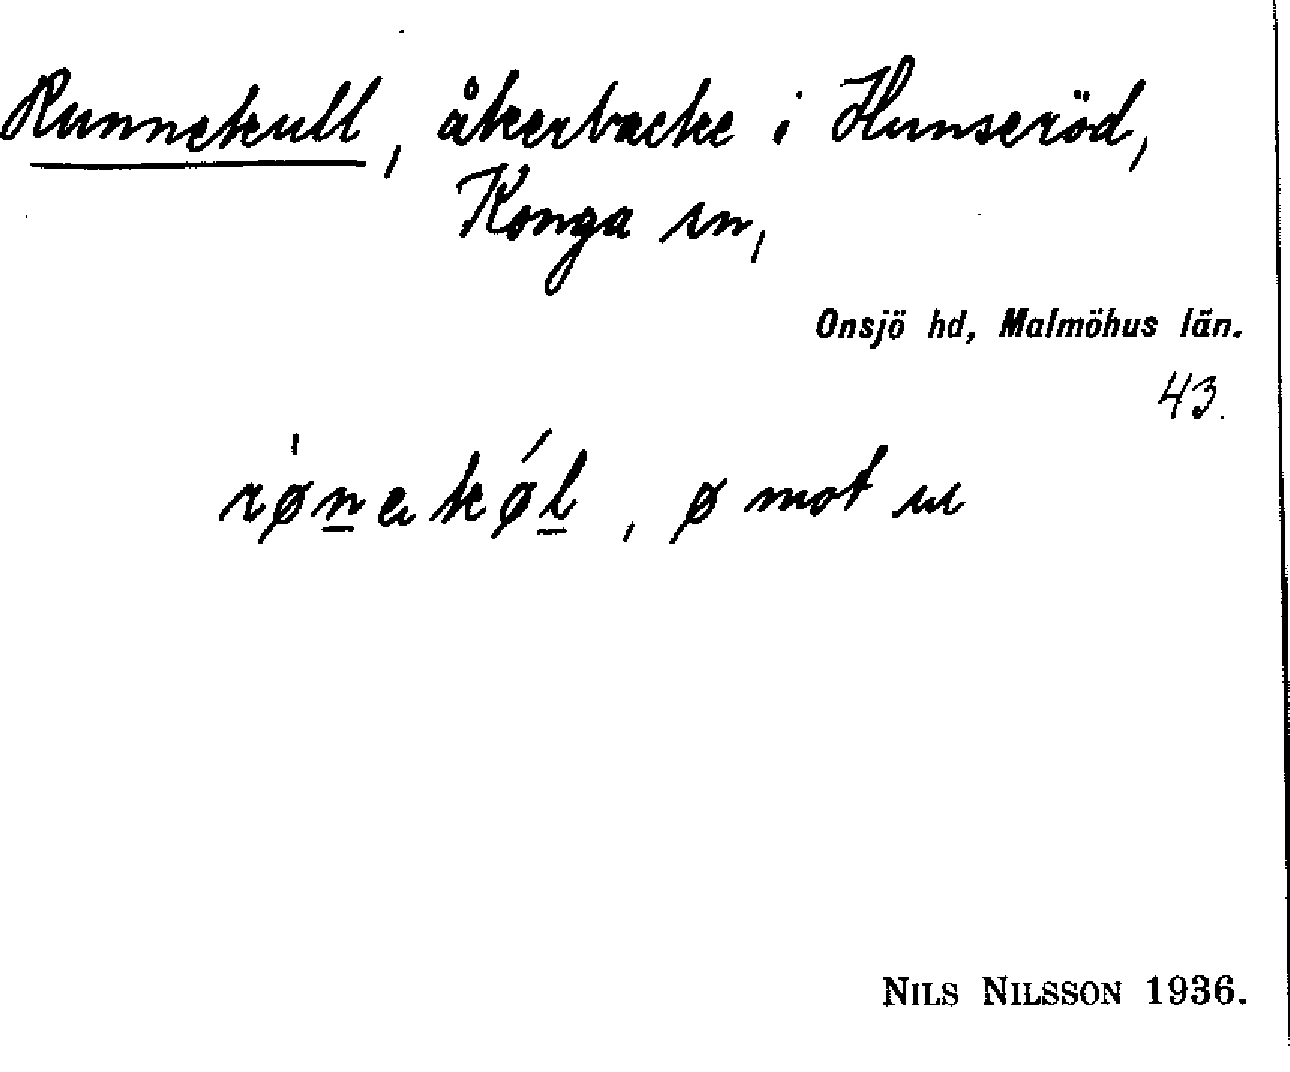 Runnekull, åkerbacke i Hunseröd,
Konga sn,
Onsjö hd, Malmöhus län.
43.
rø̍nekǿl, ø mot u
NILS NILSSON 1936.